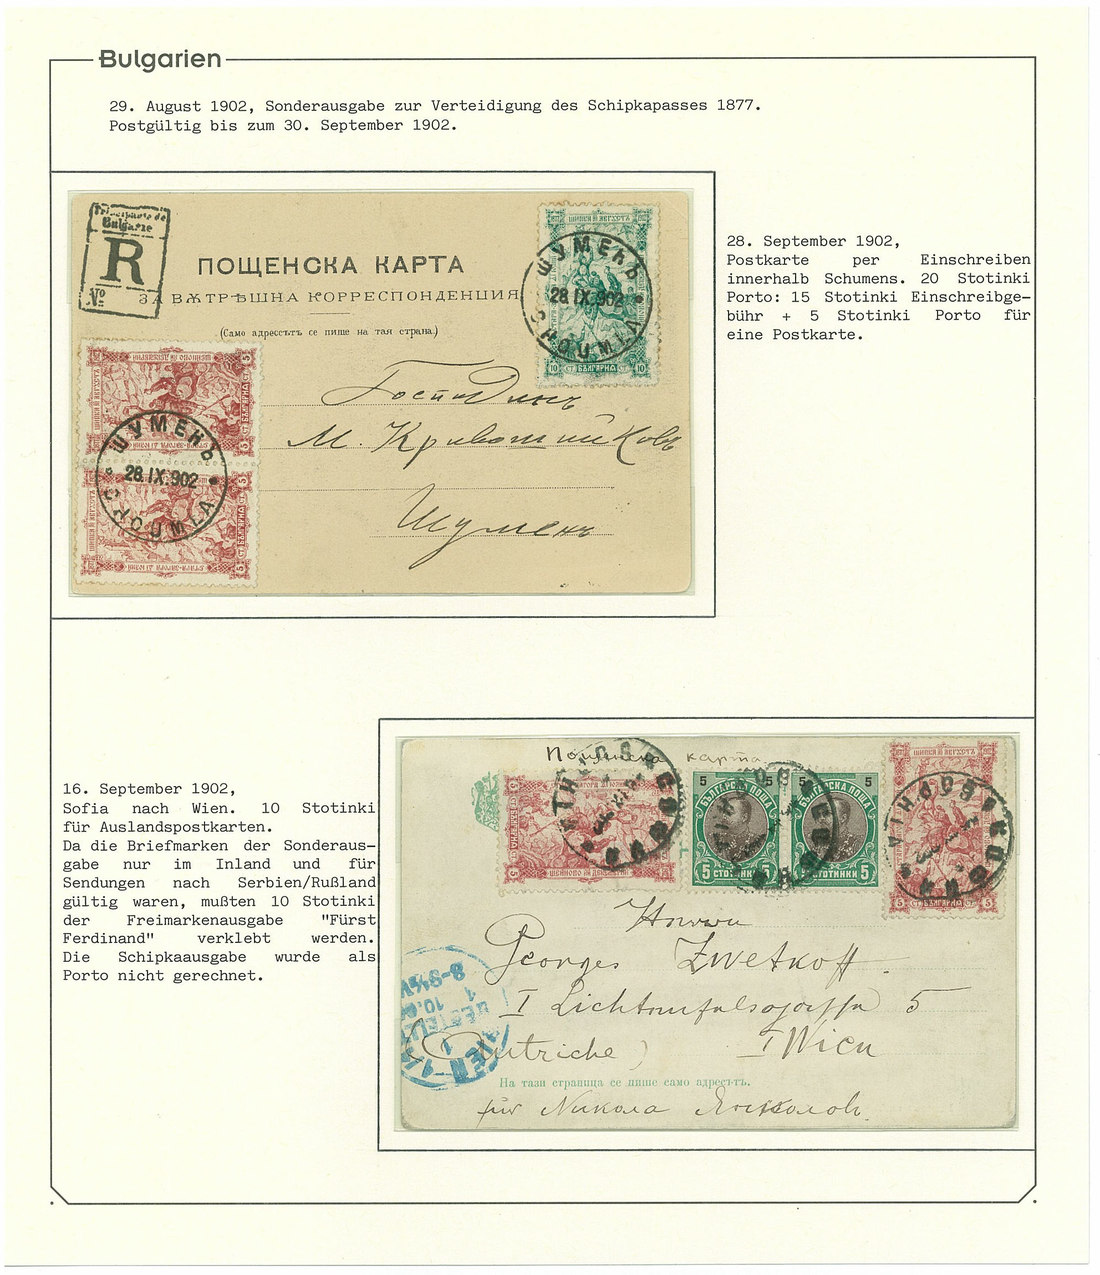 Bulgarien
29. August 1902, Sonderausgabe zur Verteidigung des Schipkapasses 1877.
Postgültig bis zum 30. September 1902.
Principauté de
Bulgarie
R
№
ПОЩЕНСКА КАРТА
ЗА ВѪТРѢШНА КОРРЕСПОНДЕНЦИЯ
(Само адрессътъ се пише на тая страна.)
ШУМЕНЪ
28.IX.902
CHOUMLA
10 СТ. БЪЛГАРИЯ СТ. 10
5
5
ШУМЕНЪ
28.IX.902
CHOUMLA
Господинъ
М. Кривошийковъ
Шуменъ
28. September 1902,
Postkarte per Einschreiben
innerhalb Schumens. 20 Stotinki
Porto: 15 Stotinki Einschreibge-
bühr + 5 Stotinki Porto für
eine Postkarte.
16. September 1902,
Sofia nach Wien. 10 Stotinki
für Auslandspostkarten.
Da die Briefmarken der Sonderaus-
gabe nur im Inland und für
Sendungen nach Serbien/Rußland
gültig waren, mußten 10 Stotinki
der Freimarkenausgabe "Fürst
Ferdinand" verklebt werden.
Die Schipkaausgabe wurde als
Porto nicht gerechnet.
Пощенска карта
5 5
БЪЛГАРСКА ПОЩА
5 СТОТИНКИ 5
5 5
БЪЛГАРСКА ПОЩА
5 СТОТИНКИ 5
5 СТ. БЪЛГАРИЯ СТ. 5
Georges Zwetkoff.
I Lichtenfelsgasse 5
(Autriche) Wien
WIEN
BESTELLT
На тази страница се пише само адресътъ.
für Никола